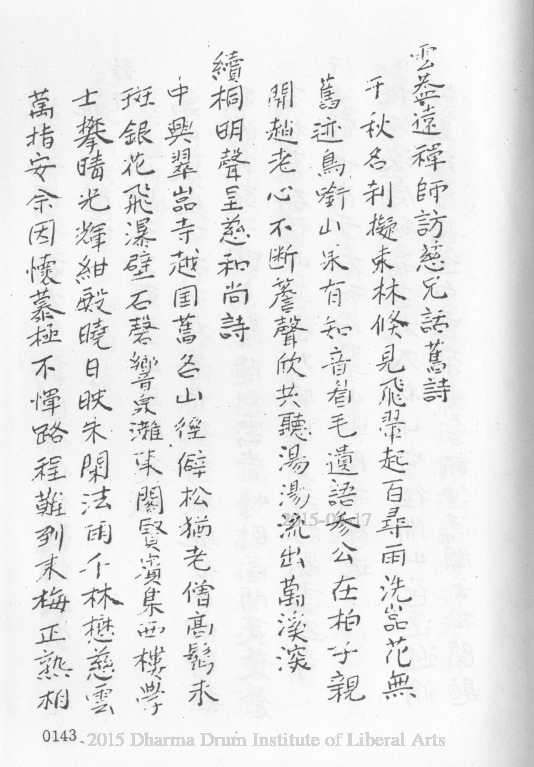 雲蓋遠禪師訪慈兄話舊詩
千秋名刹擬東林倏見飛翬起百尋雨洗嵒花無
舊迹鳥啣山果有知音眉毛遺語參公在柏子親
聞趙老心不斷簷聲欣共聽湯湯流出萬溪深
續桐明聲呈慈和尚詩
中興翠嵒寺越国舊名山徑僻松猶老僧高鬚未
斑銀花飛瀑壁石磬響泉灘東閣賢賓集西樓學
士攀晴光輝紺殿曉日映朱闌法雨千林懋慈雲
萬指安余因懷慕極不憚路程難到来梅正熟相
0143
2015 Dharma Drum Institute of Liberal Arts